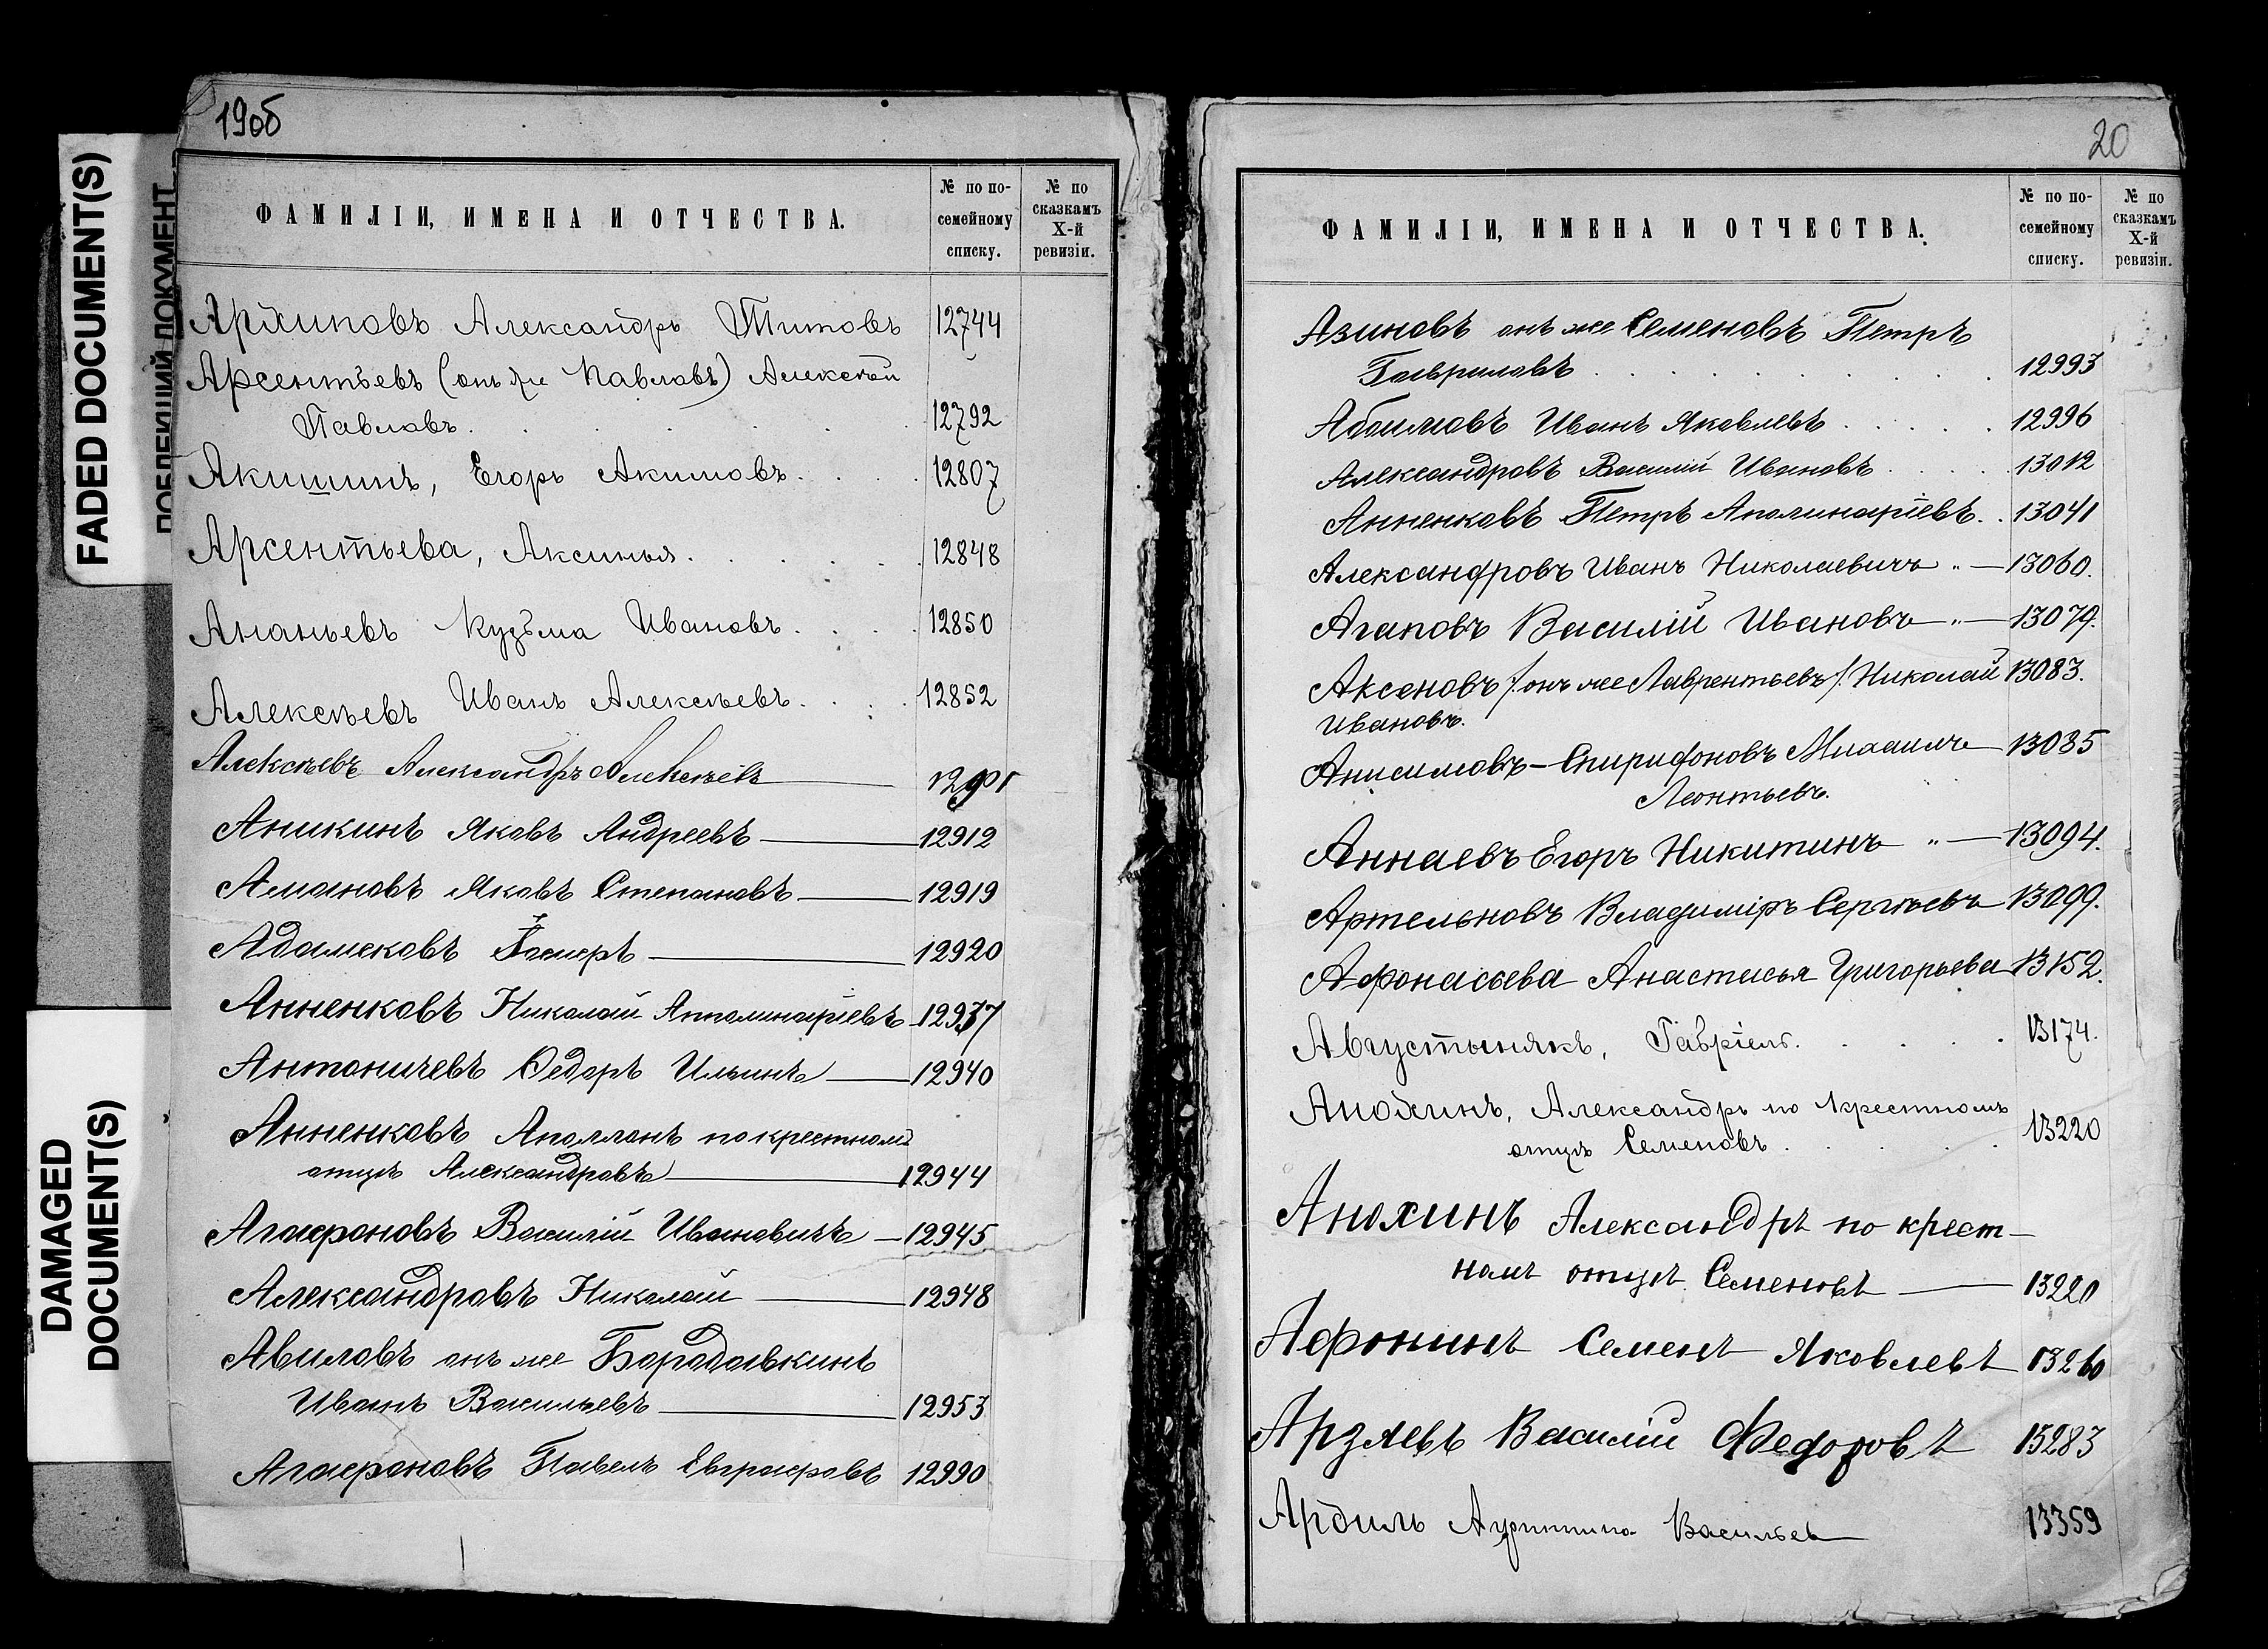 FADED DOCUMENT(S)
ДОКУМЕНТ
DAMAGED
DOCUMENT(S)
19об
ФАМИЛІИ, ИМЕНА И ОТЧЕСТВА.
№ по по-
семейному
списку.
№ по
сказкамъ
X-й
ревизіи.
Архиповъ Александръ Титовъ 12744
Арсентьевъ (онъ же Павловъ) Алексѣй
Павловъ. 12792
Акишинъ, Егоръ Акимовъ. 12807
Арсентьева, Аксинья. 12848
Ананьевъ Кузьма Ивановъ. 12850
Алексѣевъ Иванъ Алексѣевъ. 12852
Алексѣевъ Александръ Алексѣевъ 12901
Аникинъ Яковъ Андреевъ 12912
Амановъ Яковъ Степановъ 12919
Адамековъ 12920
Анненковъ Николай Апполинаріевъ 12937
Антоничевъ Ѳедоръ Ильинъ 12940
Анненковъ Аполлонъ по крестному
отцу Александровъ 12944
Агафоновъ Василій Ивановичъ 12945
Александровъ Николай 12948
Авиловъ онъ же Бородавкинъ
Иванъ Васильевъ 12953
Агафоновъ Павелъ Евграфовъ 12990
20
ФАМИЛІИ, ИМЕНА И ОТЧЕСТВА.
№ по по-
семейному
списку.
№ по
сказкамъ
X-й
ревизіи.
Азиновъ онъ же Семеновъ Петръ
Гавриловъ 12993
Абоимовъ Иванъ Яковлевъ 12996
Александровъ Василій Ивановъ 13012
Анненковъ Петръ Аполинаріевъ. 13041
Александровъ Иванъ Николаевичъ " 13060.
Агаповъ Василій Ивановъ " 13079.
Аксеновъ /онъ же Лаврентьевъ/ Николай 13083.
Ивановъ.
Анисимовъ-Спиридоновъ Михаилъ 13085
Леонтьевъ.
Аннаевъ Егоръ Никитинъ " 13094.
Артельновъ Владиміръ Сергѣевъ 13099.
Афонасьева Анастасья Григорьева 13152.
Августынякъ, Гавріелъ. 13174.
Анохинъ, Александръ по крестному
отцу Семеновъ. 13220
Анохинъ Александръ по крест-
ному отцу Семеновъ 13220
Афонинъ Семенъ Яковлевъ 13260
Арзяевъ Василій Федоровъ 13283
Васильев 13359